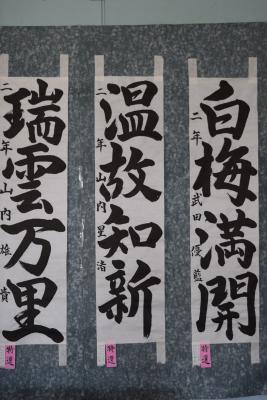 白梅満開
二年 武田優藍
特選
温故知新
二年 山内星渚
特選
瑞雲万里
二年 山内雄貴
特選